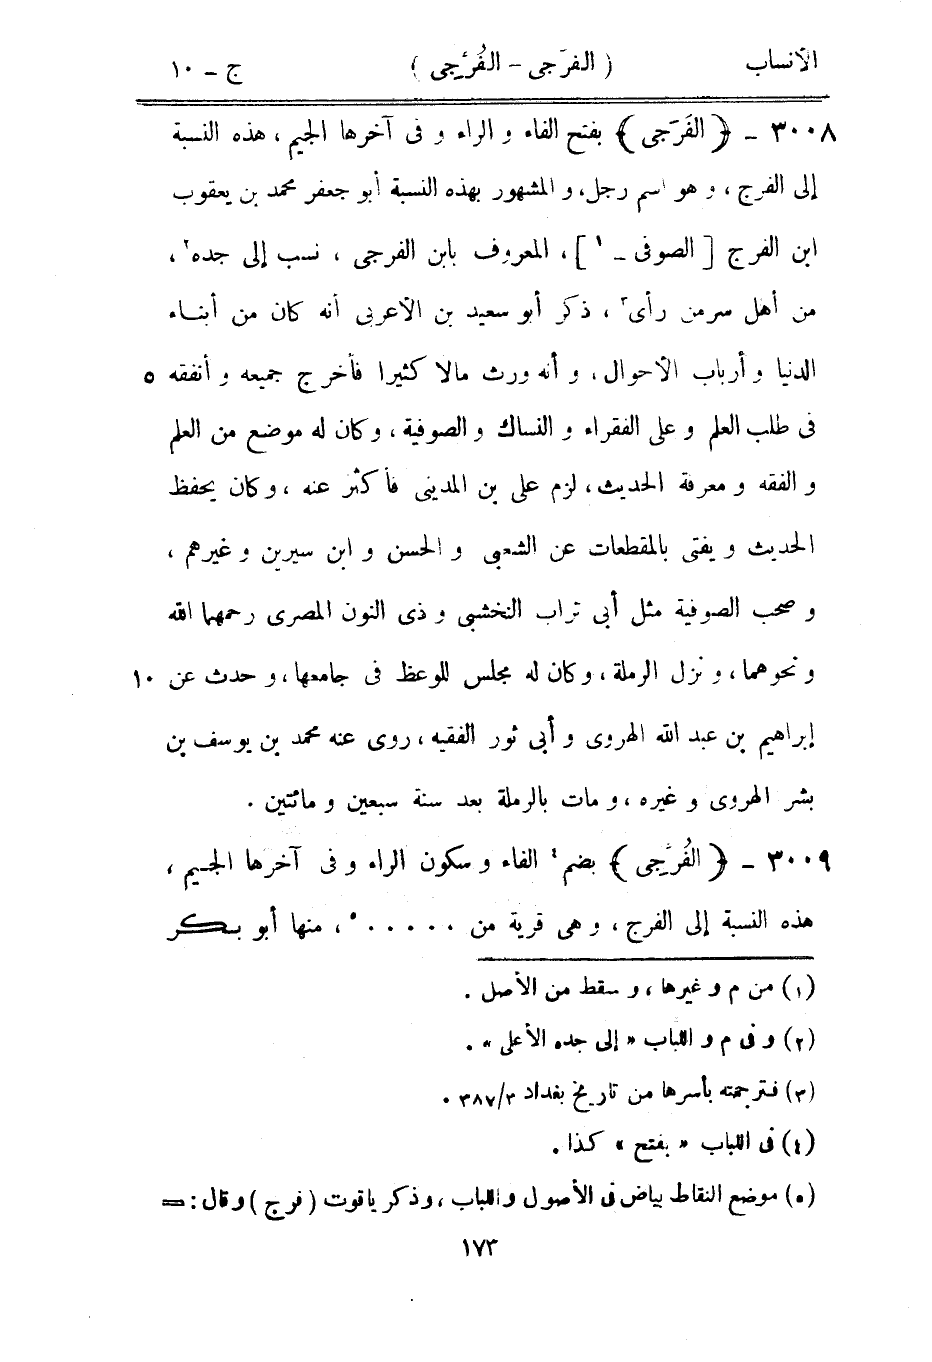 الأنساب ( الفرَجى - الفُرْجى ) ج - ١٠
٣٠٠٨ - ﴿ الفَرَجى ﴾ بفتح الفاء و الراء و فى آخرها الجيم ، هذه النسبة
إلى الفرج ، و هو اسم رجل، و المشهور بهذه النسبة أبو جعفر محمد بن يعقوب
ابن الفرج [ الصوفى - ١ ] ، المعروف بابن الفرجى ، نسب إلى جده٢ ،
من أهل سرمن رأى٣ ، ذكر أبو سعيد بن الأعربى أنه كان من أبناء
الدنيا و أرباب الأحوال، و أنه ورث مالا كثيرا فأخرج جميعه و أنفقه ٥
فى طلب العلم و على الفقراء و النساك و الصوفية ، و كان له موضع من العلم
و الفقه و معرفة الحديث، لزم على بن المدينى فأكثر عنه ، و كان يحفظ
الحديث و يفتى بالمقطعات عن الشعبى و الحسن و ابن سيرين و غيرهم ،
و صحب الصوفية مثل أبى تراب النخشبى و ذى النون المصرى رحمهما الله
و نحوهما ، و نزل الرملة ، و كان له مجلس للوعظ فى جامعها ، و حدث عن ١٠
إبراهيم بن عبد الله الهروى و أبى ثور الفقيه ، روى عنه محمد بن يوسف بن
بشر الهروى و غيره ، و مات بالرملة بعد سنة سبعين و مائتين .
٣٠٠٩ - ﴿ الفُرْجى ﴾ بضم٤ الفاء و سكون الراء و فى آخرها الجيم ،
هذه النسبة إلى الفرج ، و هى قرية من . . . . .٥ ، منها أبو بكر
(١) من م و غيرها ، و سقط من الأصل .
(٢) و فى م و اللباب « إلى جده الأعلى » .
(٣) فترجمته بأسرها من تاريخ بغداد ٣٨٧/٣ .
(٤) فى اللباب « بفتح » كذا .
(٥) موضع النقاط بياض فى الأصول و اللباب ، و ذكر ياقوت ( فرج ) و قال : =
١٧٣